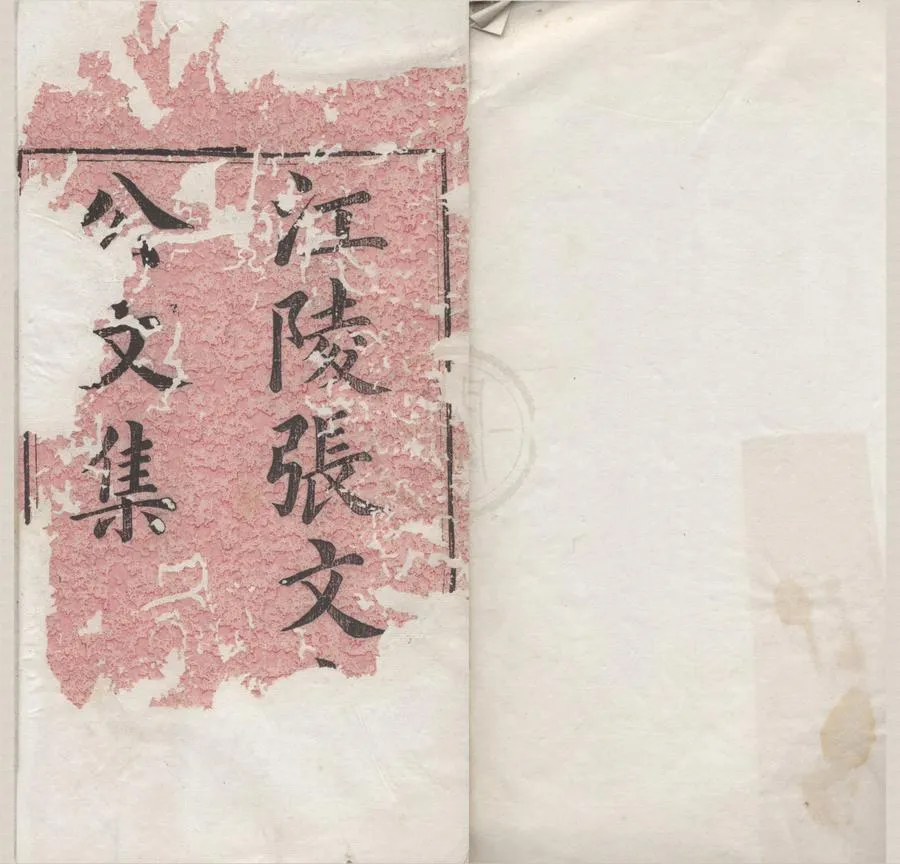 江陵張文
公文集